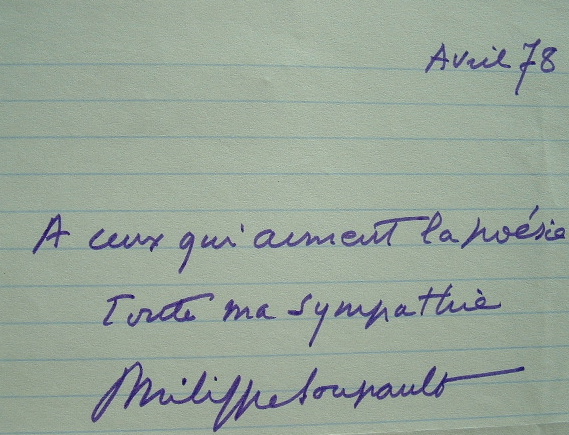 Avril 78
A ceux qui aiment la poésie
Toute ma sympathie
Philippe Soupault